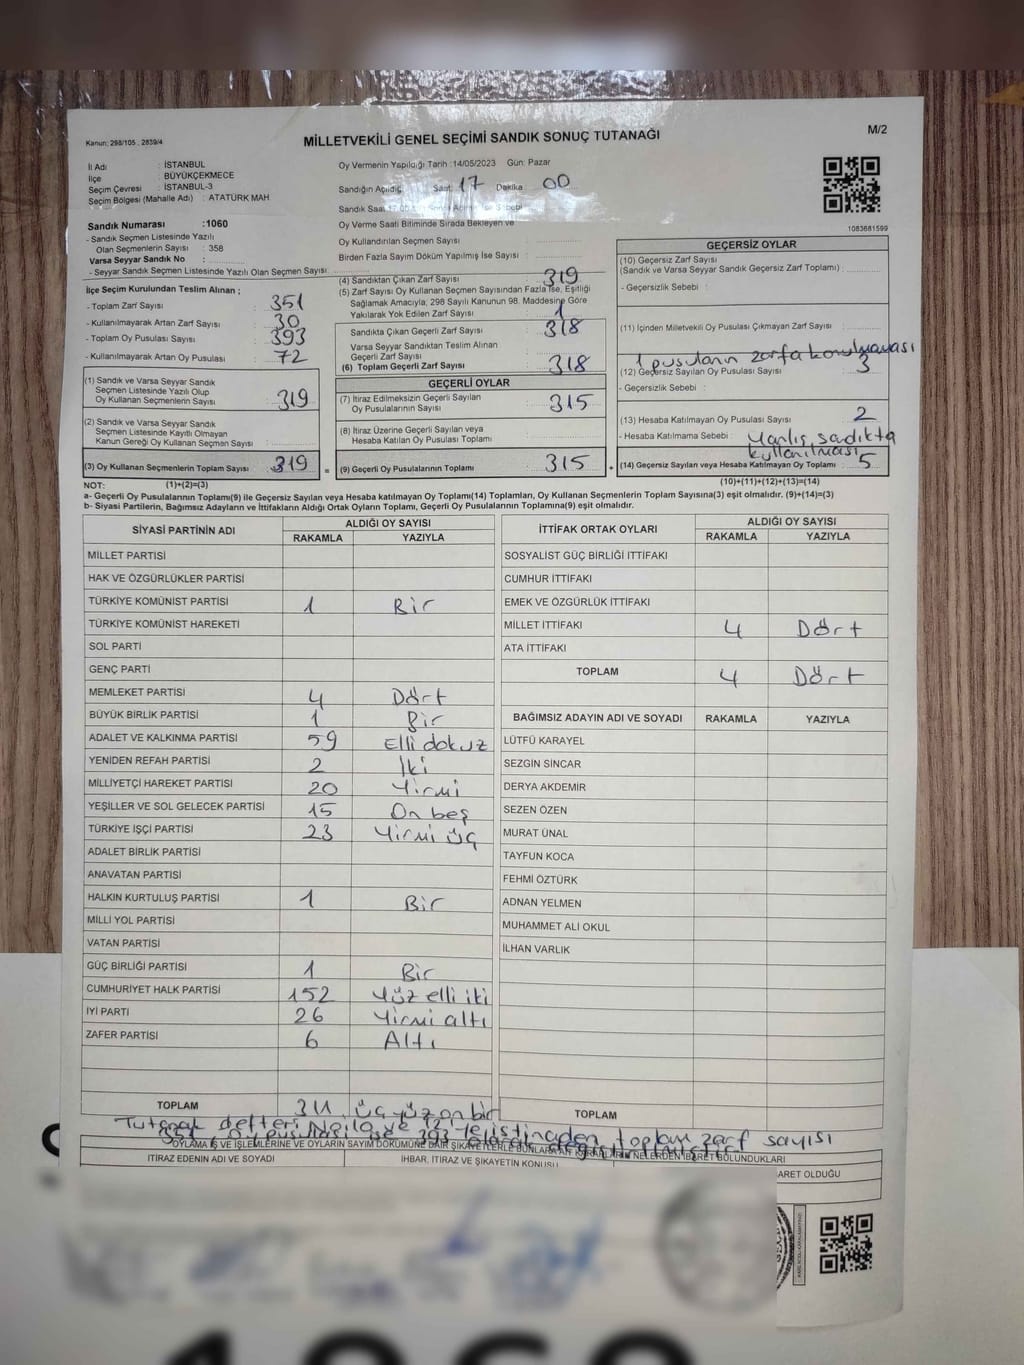 M/2
Kanun: 298/105 , 2839/4
MİLLETVEKİLİ GENEL SEÇİMİ SANDIK SONUÇ TUTANAĞI
İl Adı : İSTANBUL
İlçe : BÜYÜKÇEKMECE
Seçim Çevresi : İSTANBUL-3
Seçim Bölgesi (Mahalle Adı) : ATATÜRK MAH
Oy Vermenin Yapıldığı Tarih :14/05/2023 Gün: Pazar
Sandığın Açıldığı Saat 17 Dakika 00
Sandık Saat
Oy Verme Saati Bitiminde Sırada Bekleyen ve
Oy Kullandırılan Seçmen Sayısı
Birden Fazla Sayım Döküm Yapılmış İse Sayısı
1083681599
Sandık Numarası :1060
- Sandık Seçmen Listesinde Yazılı
Olan Seçmenlerin Sayısı : 358
Varsa Seyyar Sandık No :
- Seyyar Sandık Seçmen Listesinde Yazılı Olan Seçmen Sayısı
İlçe Seçim Kurulundan Teslim Alınan ;
- Toplam Zarf Sayısı : 351
- Kullanılmayarak Artan Zarf Sayısı : 30
- Toplam Oy Pusulası Sayısı : 393
- Kullanılmayarak Artan Oy Pusulası : 72
(1) Sandık ve Varsa Seyyar Sandık
Seçmen Listesinde Yazılı Olup
Oy Kullanan Seçmenlerin Sayısı : 319
(2) Sandık ve Varsa Seyyar Sandık
Seçmen Listesinde Kayıtlı Olmayan
Kanun Gereği Oy Kullanan Seçmen Sayısı :
(3) Oy Kullanan Seçmenlerin Toplam Sayısı : 319
(4) Sandıktan Çıkan Zarf Sayısı : 319
(5) Zarf Sayısı Oy Kullanan Seçmen Sayısından Fazla İse, Eşitliği
Sağlamak Amacıyla, 298 Sayılı Kanunun 98. Maddesine Göre
Yakılarak Yok Edilen Zarf Sayısı : 1
Sandıkta Çıkan Geçerli Zarf Sayısı : 318
Varsa Seyyar Sandıktan Teslim Alınan
Geçerli Zarf Sayısı :
(6) Toplam Geçerli Zarf Sayısı : 318
GEÇERLİ OYLAR
(7) İtiraz Edilmeksizin Geçerli Sayılan
Oy Pusulalarının Sayısı : 315
(8) İtiraz Üzerine Geçerli Sayılan veya
Hesaba Katılan Oy Pusulası Toplamı :
= (9) Geçerli Oy Pusulalarının Toplamı : 315 +
GEÇERSİZ OYLAR
(10) Geçersiz Zarf Sayısı
(Sandık ve Varsa Seyyar Sandık Geçersiz Zarf Toplamı) :
- Geçersizlik Sebebi :
(11) İçinden Milletvekili Oy Pusulası Çıkmayan Zarf Sayısı :
1 pusulanın zarfa konulmaması
(12) Geçersiz Sayılan Oy Pusulası Sayısı : 3
- Geçersizlik Sebebi :
(13) Hesaba Katılmayan Oy Pusulası Sayısı : 2
- Hesaba Katılmama Sebebi : Yanlış sadıkta
kullanılması
(14) Geçersiz Sayılan veya Hesaba Katılmayan Oy Toplamı : 5
NOT: (1)+(2)=(3)
(10)+(11)+(12)+(13)=(14)
a- Geçerli Oy Pusulalarının Toplamı(9) ile Geçersiz Sayılan veya Hesaba katılmayan Oy Toplamı(14) Toplamları, Oy Kullanan Seçmenlerin Toplam Sayısına(3) eşit olmalıdır. (9)+(14)=(3)
b- Siyasi Partilerin, Bağımsız Adayların ve İttifakların Aldığı Ortak Oyların Toplamı, Geçerli Oy Pusulalarının Toplamına(9) eşit olmalıdır.
SİYASİ PARTİNİN ADI ALDIĞI OY SAYISI
RAKAMLA YAZIYLA
MİLLET PARTİSİ
HAK VE ÖZGÜRLÜKLER PARTİSİ
TÜRKİYE KOMÜNİST PARTİSİ 1 Bir
TÜRKİYE KOMÜNİST HAREKETİ
SOL PARTİ
GENÇ PARTİ
MEMLEKET PARTİSİ 4 Dört
BÜYÜK BİRLİK PARTİSİ 1 Bir
ADALET VE KALKINMA PARTİSİ 59 Elli dokuz
YENİDEN REFAH PARTİSİ 2 İki
MİLLİYETÇİ HAREKET PARTİSİ 20 Yirmi
YEŞİLLER VE SOL GELECEK PARTİSİ 15 On beş
TÜRKİYE İŞÇİ PARTİSİ 23 Yirmi üç
ADALET BİRLİK PARTİSİ
ANAVATAN PARTİSİ
HALKIN KURTULUŞ PARTİSİ 1 Bir
MİLLİ YOL PARTİSİ
VATAN PARTİSİ
GÜÇ BİRLİĞİ PARTİSİ 1 Bir
CUMHURİYET HALK PARTİSİ 152 Yüz elli iki
İYİ PARTİ 26 Yirmi altı
ZAFER PARTİSİ 6 Altı
TOPLAM 311 üç yüz on bir
İTTİFAK ORTAK OYLARI ALDIĞI OY SAYISI
RAKAMLA YAZIYLA
SOSYALİST GÜÇ BİRLİĞİ İTTİFAKI
CUMHUR İTTİFAKI
EMEK VE ÖZGÜRLÜK İTTİFAKI
MİLLET İTTİFAKI 4 Dört
ATA İTTİFAKI
TOPLAM 4 Dört
BAĞIMSIZ ADAYIN ADI VE SOYADI RAKAMLA YAZIYLA
LÜTFÜ KARAYEL
SEZGİN SİNCAR
DERYA AKDEMİR
SEZEN ÖZEN
MURAT ÜNAL
TAYFUN KOCA
FEHMİ ÖZTÜRK
ADNAN YELMEN
MUHAMMET ALİ OKUL
İLHAN VARLIK
TOPLAM
Tutanak defteri toplam zarf sayısı
351, oy pusulası ise 393 olarak
OYLAMA İŞ VE İŞLEMLERİNE VE OYLARIN SAYIM DÖKÜMÜNE DAİR ŞİKAYETLERLE BUNLARA NELERDEN İBARET BULUNDUKLARI
İTİRAZ EDENİN ADI VE SOYADI İHBAR, İTİRAZ VE ŞİKAYETİN KONUSU ARET OLDUĞU